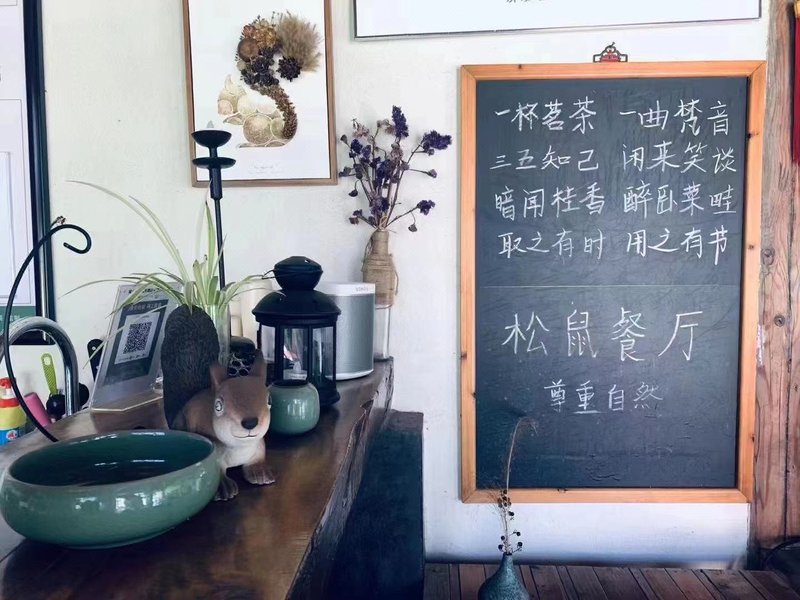 一杯茗茶 一曲梵音
三五知己 闲来笑谈
暗闻桂香 醉卧菜畦
取之有时 用之有节
松鼠餐厅
尊重自然